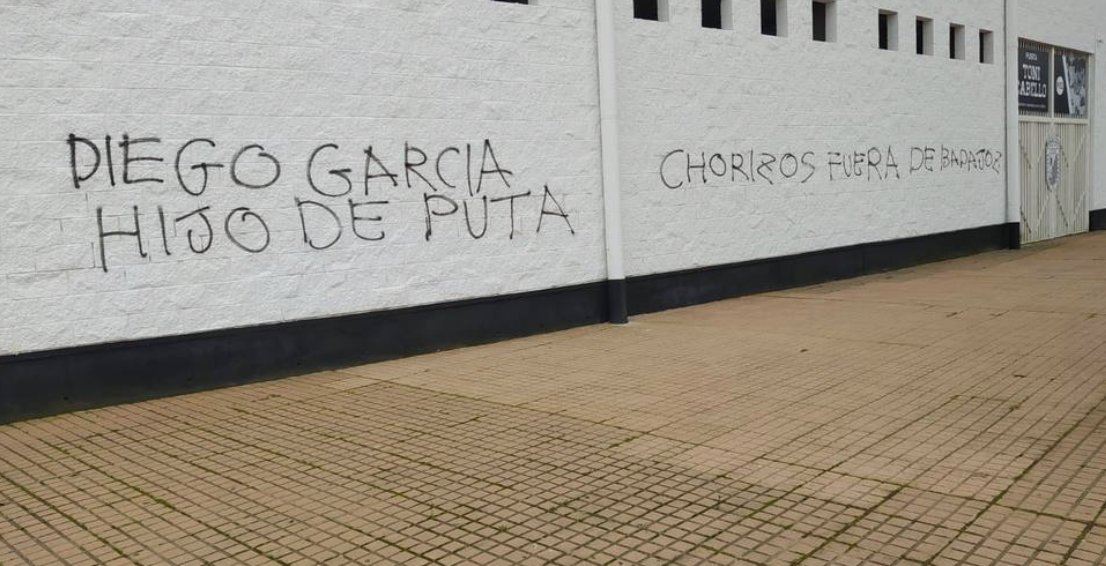 DIEGO GARCIA
HIJO DE PUTA
CHORIZOS FUERA DE BADAJOZ
PUERTA
TONI
CABELLO